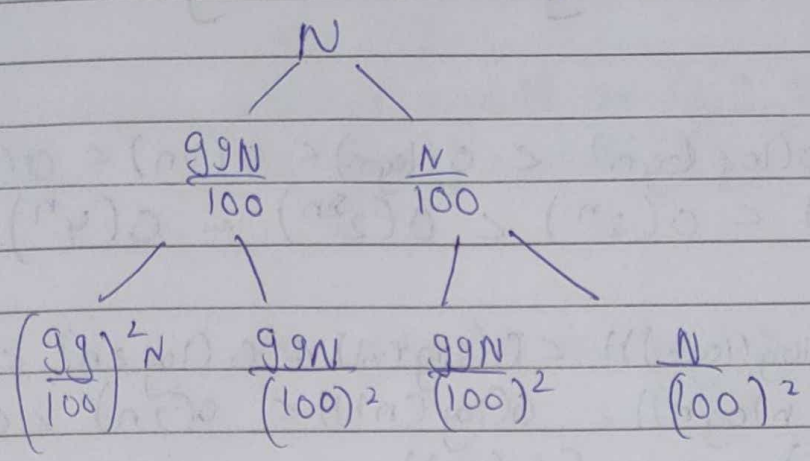 N
99N/100 N/100
(99/100)²N 99N/(100)² 99N/(100)² N/(100)²